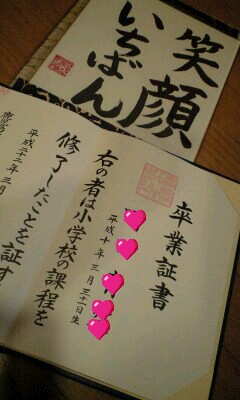 笑顔
いちばん
卒業証書
平成十年三月三十一日生
右の者は小学校の課程を
修了したことを証す
平成二十二年三月